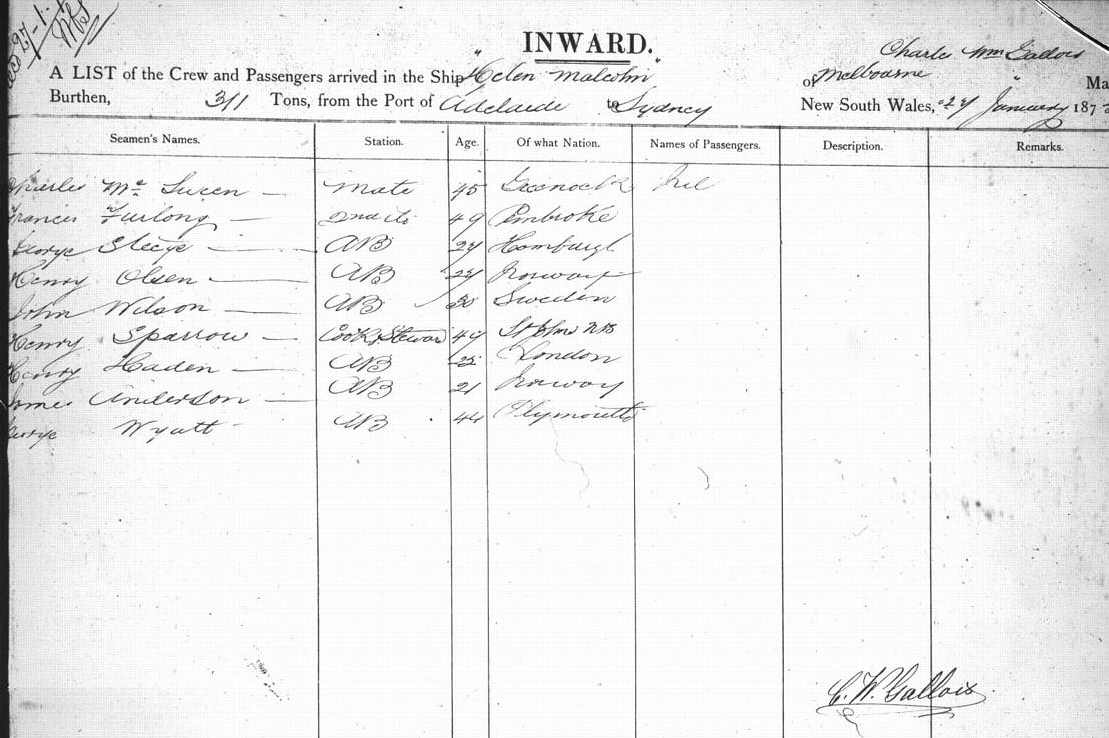 INWARD.
Charles Wm Gallois
A LIST of the Crew and Passengers arrived in the Ship "Helen Malcolm" of Melbourne Ma
Burthen, 311 Tons, from the Port of Adelaide to Sydney New South Wales, 27 January 187
Seamen's Names. Station. Age. Of what Nation. Names of Passengers. Description. Remarks.
Charles Mc Sween Mate 45 Greenock Nil
Frances Furlong 2nd do 49 Pembroke
George Steege AB 27 Hamburgh
Henry Olsen AB 27 Norway
John Wilson AB 30 Sweden
Henry Sparrow Cook & Steward 47 St Johns NB
Henry Haden AB 22 London
James Anderson AB 21 Norway
George Wyatt AB 44 Plymouth
C. W. Gallois